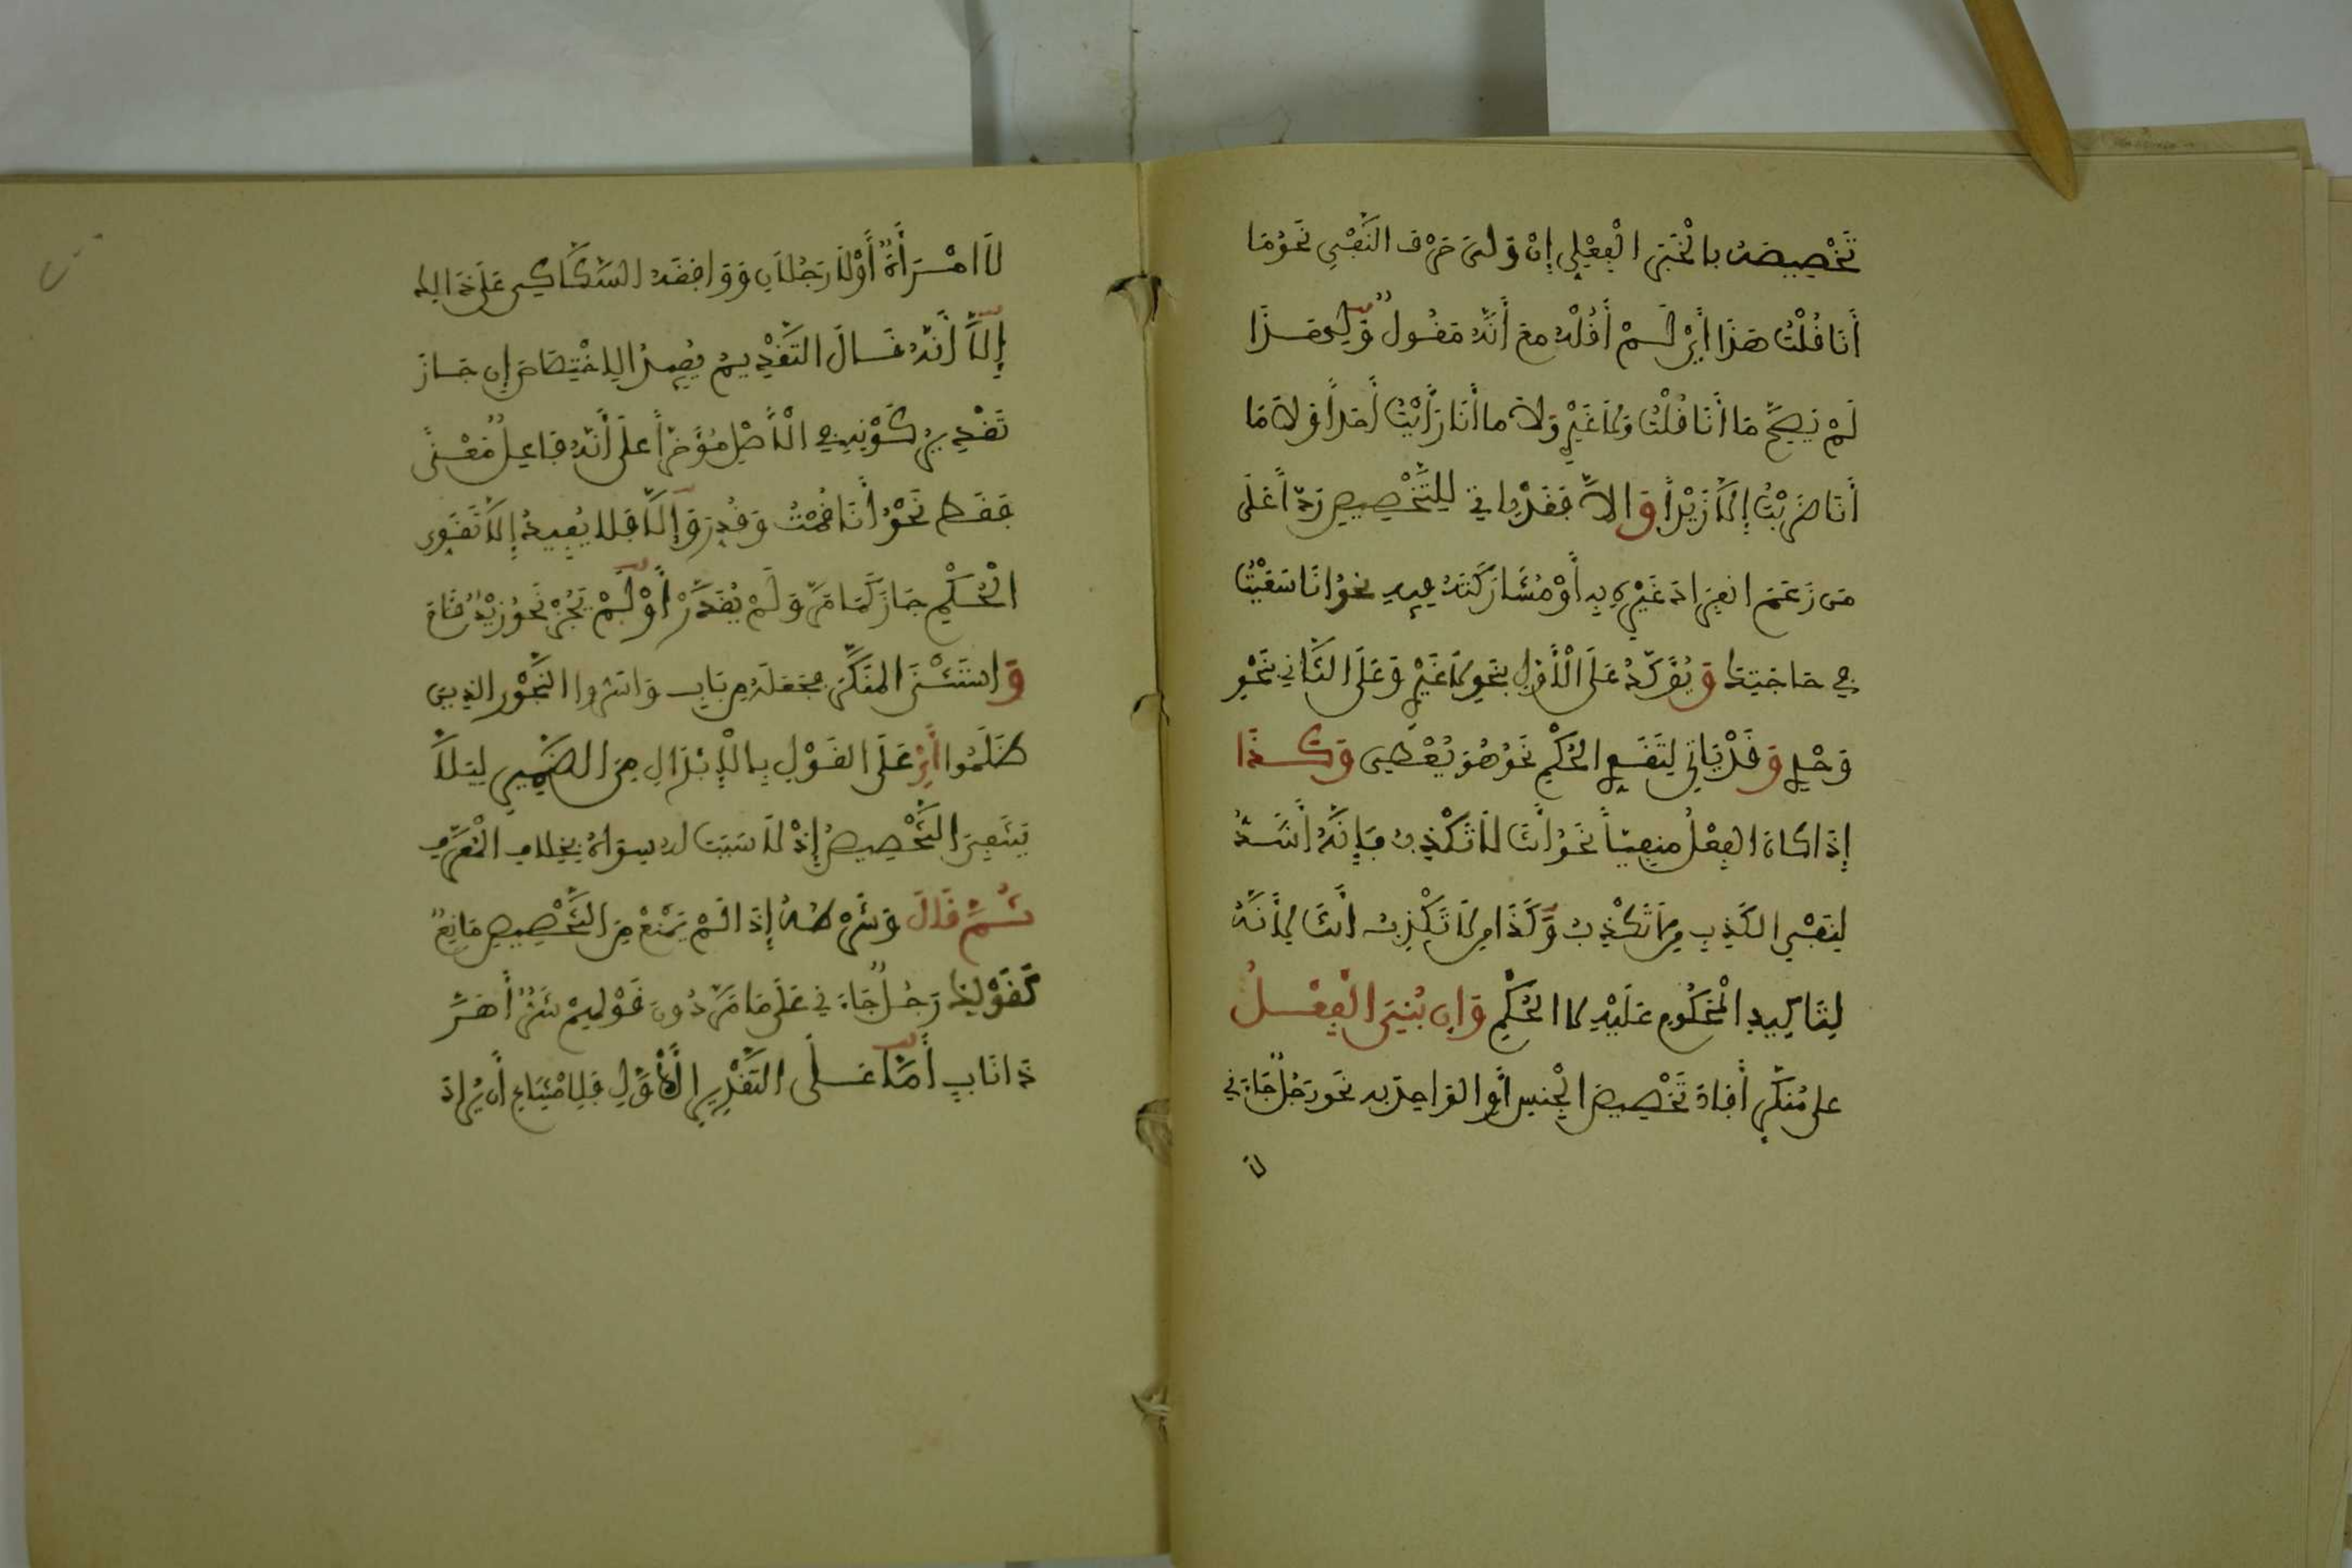 تَخْصِيصَهُ بِالْخَبَرِ الْفِعْلِي إِنْ وَلِيَ حَرْفَ النَّفْيِ نَحْوُ مَا
أَنَا قُلْتُ هَذَا أَيْ لَمْ أَقُلْهُ مع أَنَّهُ مَقُولٌ وَلِهَذَا
لَمْ يَصِحَّ مَا أَنَا قُلْتُ وَلَا غَيْرِ وَلَا مَا أَنَا رَأَيْتُ أَحَداً وَلَا مَا
أَنَا ضَرَبْتُ إِلَّا زَيْداً وَالاَّ فَقَدْ يَاتِي لِلتَّخْصِيصِ رَدّاً عَلَى
مَن زَعَمَ انفِرَادَ غَيْرِهِ بِهِ أَوْ مُشَارَكَتَهُ فِيهِ نحوُ انَا سَعَيْتُ
فِي حَاجَتِكَ وَيُؤَكَّدُ عَلَى الْأَوَّلِ بِنَحْوِ لَا غَيْرِ وَعَلَى الثَّانِي نَحْوِ
وَحْدِي وَقَدْ يَاتِي لِتَقَوِّي الْحُكْمِ نَحْوُ هُوَ يُعْطِي وَكَذَا
إِذَا كَانَ الْفِعْلُ مَنْفِيّاً نَحْوُ أَنْتَ لَا تَكْذِبُ فَإِنَّهُ أَشَدُّ
لِنَفْيِ الْكَذِبِ مِن لَا تَكْذِبُ وَكَذَا مِن لَا تَكْذِبُ أَنتَ لِأَنَّهُ
لِتَاكِيدِ الْمَحْكُومِ عَلَيْهِ لَا الْحُكْمِ وَإِن بُنِيَ الْفِعْلُ
على مُنَكَّرٍ أَفَادَ تَخْصِيصَ الْجِنسِ أَوِ الْوَاحِدِ بِهِ نَحْوَ رَجُلٌ جَاءَنِي
لَا
لَا امْرَأَةٌ أَوْ لَا رَجُلَانِ وَوَافَقَهُ السَّكَّاكِي عَلَى ذَالِكَ
إِلَّا أَنَّهُ قَالَ التَّقْدِيمُ يُفِيدُ الِاخْتِصَاصَ إِن جَازَ
تَقْدِيرُ كَوْنِهِ فِي الْأَصْلِ مُؤَخَّراً عَلَى أَنَّهُ فَاعِلٌ مَّعْنًى
فَقَط نَحْوُ أَنَا قُمْتُ وَقُدِّرَ وَإِلَّا فَلَا يُفِيدُ إِلَّا تَقَوِّي
الْحُكْمِ جَازَ كَمَا مَرَّ وَلَمْ يُقَدَّرْ أَوْ لَمْ يَجُزْ نَحْوُ زَيْدٌ قَامَ
وَاسْتَثْنَى الْمُنَكَّرَ بِجَعْلِهِ مِن بَابِ وَأَسَرُّوا النَّجْوَى الذِينَ
ظَلَمُوا أَيْ عَلَى الْقَوْلِ بِالْإِبْدَالِ مِنَ الضَّمِيرِ لِيَلَّا
يَنتَفِيَ التَّخْصِيصُ إِذْ لَا سَبَبَ لَهُ سِوَاهُ بِخِلَافِ الْمُعَرَّفِ
ثُمَّ قَالَ وَشَرْطُهُ إِذَا لَمْ يَمْنَعْ مِنَ التَّخْصِيصِ مَانِعٌ
كَقَوْلِكَ رَجُلٌ جَاءَنِي عَلَى مَا مَرَّ دُونَ قَوْلِهِمْ شَرٌّ أَهَرَّ
ذَا نَابٍ أَمَّا عَلَى التَّقْدِيرِ الْأَوَّلِ فَلِامْتِنَاعِ أَن يُرَادَ